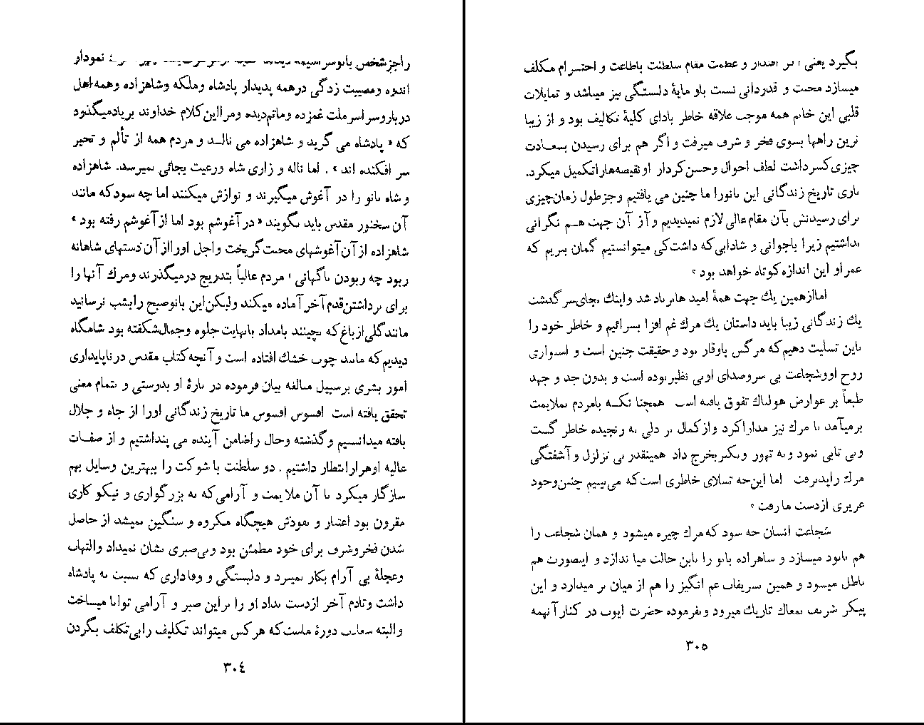 راجز شخص بانو سراسیمه نمودار
اندوه ومصیبت زدگی درهمه پدیدار پادشاه وملکه وشاهزاده وهمه اهل
دربار وسراسر ملت غمزده وماتم‌دیده ومرا این کلام خداوند بریاد میگذرد
که « پادشاه می گرید و شاهزاده می نالد و مردم همه از تألم و تحیر
سر افکنده اند » . اما ناله و زاری شاه ورعیت بجائی نمیرسد. شاهزاده
و شاه بانو را در آغوش میگیرند و نوازش میکنند اما چه سود که مانند
آن سخنور مقدس باید بگویند « در آغوشم بود اما از آغوشم رفته بود »
شاهزاده از آن آغوشهای محبت گریخت واجل اورا از آن دستهای شاهانه
ربود چه ربودن ناگهانی ! مردم غالباً بتدریج درمیگذرند ومرگ آنها را
برای برداشتن قدم آخر آماده میکند ولیکن این بانو صبح را بشب نرسانید
مانند گلی از باغ که بچینند بامداد بانهایت جلوه وجمال شکفته بود شامگاه
دیدیم که مانند چوب خشک افتاده است و آنچه کتاب مقدس در ناپایداری
امور بشری برسبیل مبالغه بیان فرموده در بارهٔ او بدرستی و بتمام معنی
تحقق یافته است افسوس افسوس ما تاریخ زندگانی اورا از جاه و جلال
بافته میدانستیم وگذشته وحال راضامن آینده می پنداشتیم و از صفات
عالیه او هزار انتظار داشتیم . دو سلطنت با شوکت را ببهترین وسایل بهم
سازگار میکرد با آن ملایمت و آرامی که به بزرگواری و نیکو کاری
مقرون بود اعتبار و نفوذش هیچگاه مکروه و سنگین نمیشد از حاصل
شدن فخروشرف برای خود مطمئن بود وبی‌صبری نشان نمیداد والتهاب
وعجلهٔ بی آرام بکار نمیبرد و دلبستگی و وفاداری که نسبت به پادشاه
داشت وتادم آخر ازدست نداد او را براین صبر و آرامی توانا میساخت
والبته سعادت دورهٔ ماست که هرکس میتواند تکلیف رابی‌تکلف بگردن
۳۰۴
بگیرد یعنی اگر اقتدار و عظمت مقام سلطنت باطاعت و احترام مکلف
میسازد محبت و قدردانی نسبت باو مایهٔ دلبستگی نیز میباشد و تمایلات
قلبی این خانم همه موجب علاقه خاطر بادای کلیهٔ تکالیف بود و از زیبا
ترین راهها بسوی فخر و شرف میرفت و اگر هم برای رسیدن بسعادت
چیزی کسر داشت لطف احوال وحسن کردار او نقیصه‌هارا تکمیل میکرد.
باری تاریخ زندگانی این بانورا ما چنین می یافتیم وجز طول زمان چیزی
برای رسیدنش بآن مقام عالی لازم نمیدیدیم و از آن جهت هم نگرانی
نداشتیم زیرا باجوانی و شادابی که داشت کی میتوانستیم گمان ببریم که
عمر او این اندازه کوتاه خواهد بود ؟
اما از همین یک جهت همهٔ امید ها بر باد شد واینک بجای سرگذشت
یک زندگانی زیبا باید داستان یک مرگ غم افزا بسرائیم و خاطر خود را
باین تسلیت دهیم که مرگش باوقار بود و حقیقت چنین است و استواری
روح او وشجاعت بی سروصدای او بی نظیر بوده است و بدون جد و جهد
طبعاً بر عوارض هولناک تفوق یافته است همچنانکه بامردم بملایمت
برمیآمد با مرگ نیز مدارا کرد و از کمال بر دلی نه رنجیده خاطر گشت
و بی تابی نمود و نه تهور وتکبر بخرج داد همینقدر بی تزلزل و آشفتگی
مرگ را پذیرفت اما این چه تسلای خاطری است که می‌بینیم چنین وجود
عزیزی از دست ما رفت ؟
شجاعت انسان چه سود که مرگ چیره میشود و همان شجاعت را
هم نابود میسازد و شاهزاده بانو را باین حالت میا ندازد و اینصورت هم
باطل میشود و همین تشریفات غم انگیز را هم از میان بر میدارد و این
پیکر شریف بمغاک تاریک میرود و بفرموده حضرت ایوب در کنار آنهمه
۳۰۵